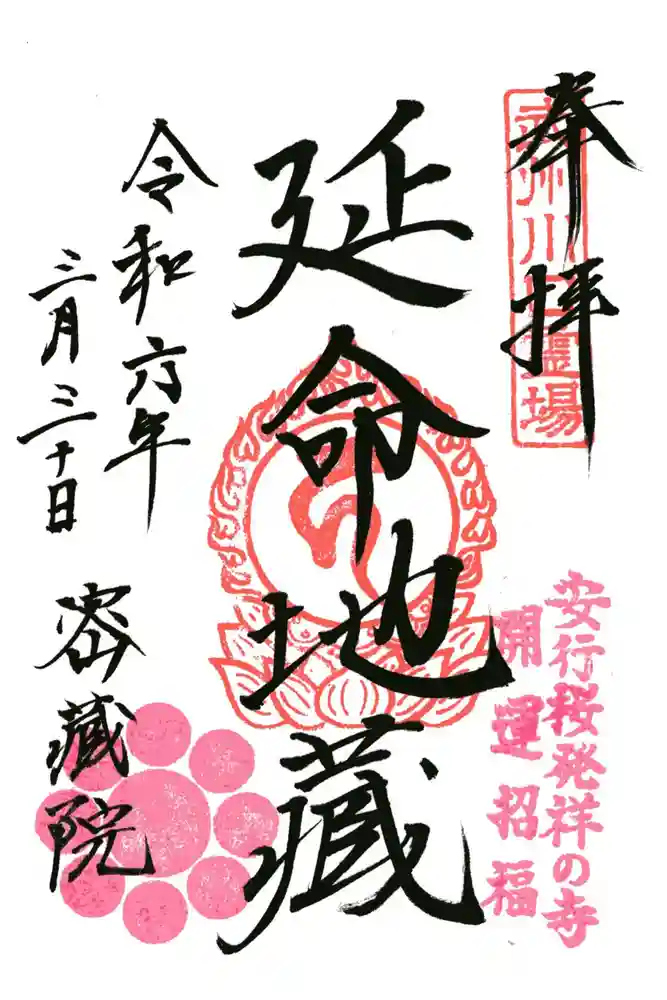 奉拝
延命地蔵
令和六年
三月三十日
密蔵院
安行桜発祥の寺
開運招福